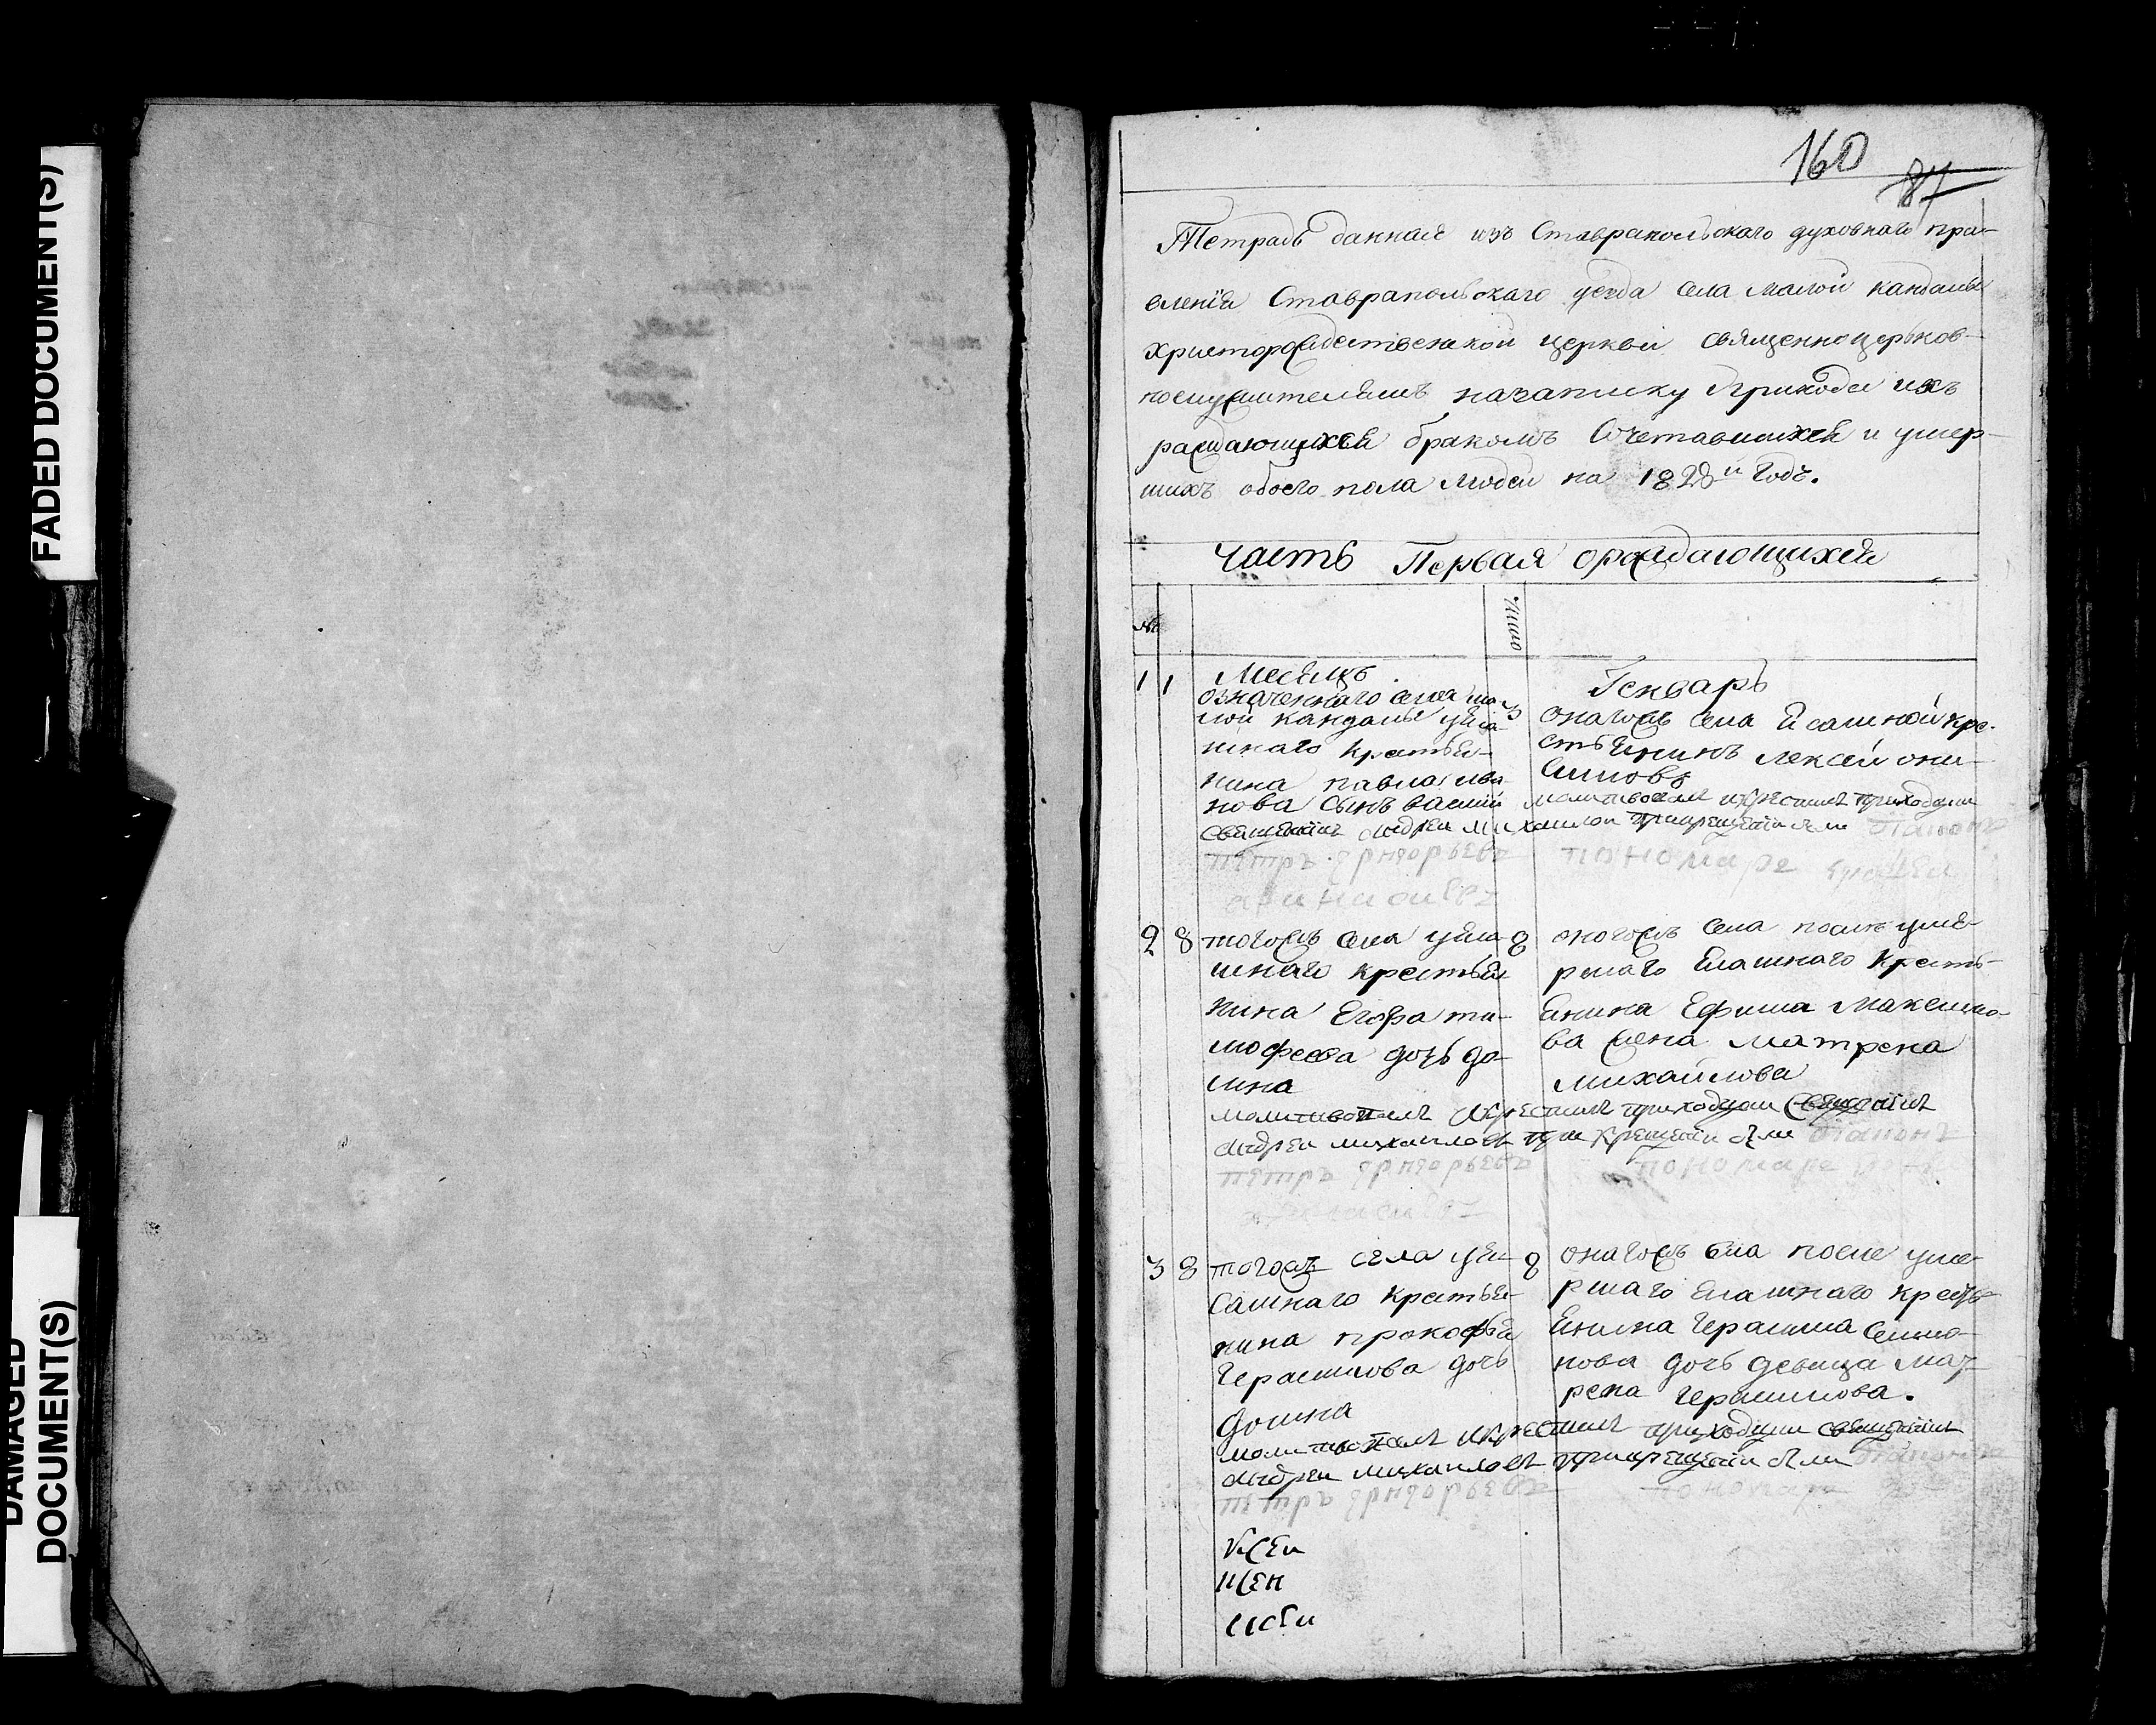 FADED DOCUMENT(S)
DAMAGED
DOCUMENT(S)
160
87
Тетрадь данная изъ Ставрапольскаго духовнаго пра-
вленїя Ставрапольскаго уезда села малой кандалы
христорождественской церкви священноцерков-
нослужителямъ назаписку Прихода ихъ
раждающихся бракомъ Сочетавшихся и умер-
шихъ обоего пола людей на 1828 й Годъ.
Часть Первая ораждающихся
№
число
Месяцъ
Генварь
1 1
означеннаго села ма-
лой кандалы
шнаго крестья-
нина павла ива-
нова сынъ василий
3
оногожъ села Ясашной кре-
стьянинъ лексей они-
симовъ
молитвовалъ икрестилъ приходции
священникъ андреи михаилов прикрещении были диаконъ
петръ григорьевъ пономарь
2 8
тогожъ села
шнаго крестья
нина Егора ти-
мофеева дочь до-
мна
8
оногожъ села после уме-
ршаго Ясашнаго кресть-
янина Ефима Максимо-
ва жена матрена
михайлова
молитвовалъ икрестилъ приходции священникъ
андреи михаиловъ при крещении были диаконъ
петръ григорьевъ пономарь
3 8
тогожъ села уея-
сашнаго крестья-
нина прокофья
Герасимова дочь
домна
8
оногожъ села после уме-
ршаго Ясашнаго кресть-
янина Герасима Семио-
нова дочь девица мат
рена Герасимова.
молитвовалъ икрестилъ приходции священникъ
андреи михаиловъ прикрещении были диаконъ
петръ григорьевъ пономарь